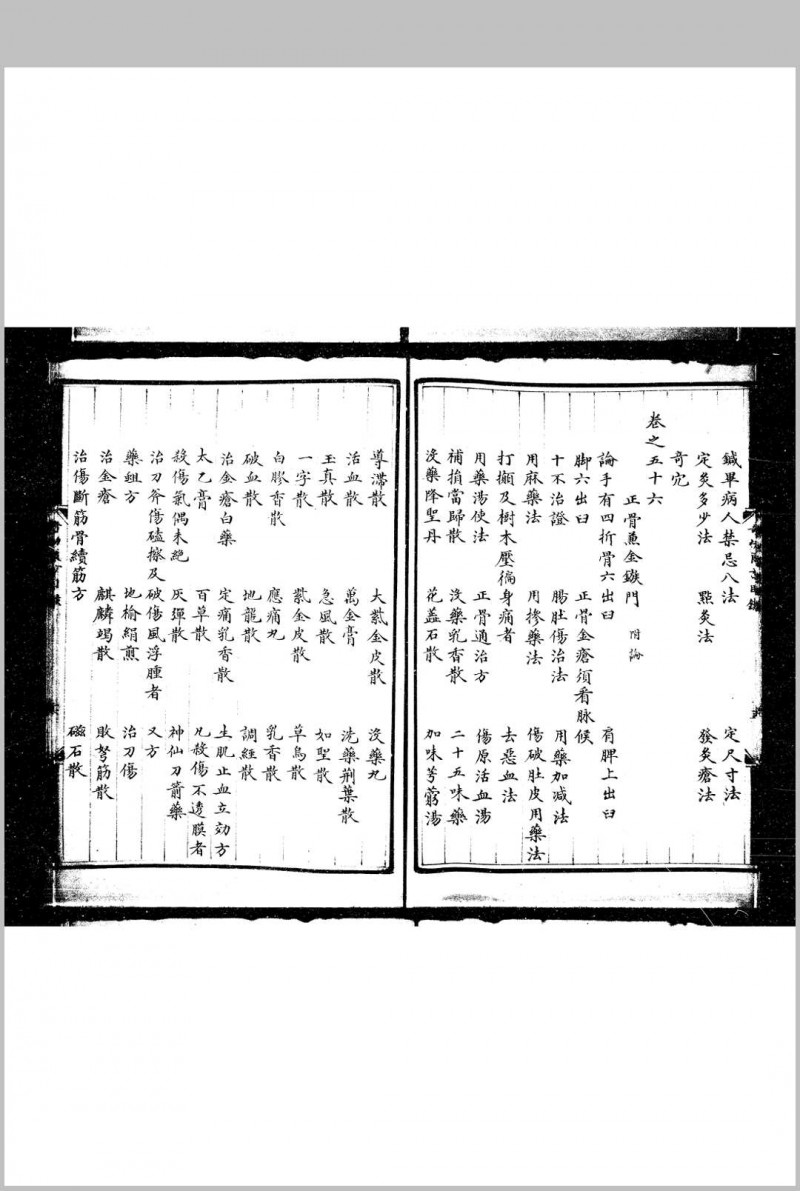 鍼畢病人禁忌八法　定尺寸法
定灸多少法　㸃灸法　發灸瘡法
奇穴
卷之五十六
正骨兼金鏃門　附論
論手有四折骨六出臼　肩胛上出臼
脚六出臼　正骨金瘡須看脉候
十不治證　腸肚傷治法　用藥加减法
用麻藥法　用摻藥法　傷破肚皮用藥法
打攧及樹木壓徧身痛者　去惡血法
用藥湯使法　正骨通治方　傷原活血湯
補損當歸散　沒藥乳香散　二十五味藥
沒藥降聖丹　花蕋石散　加味芎藭湯
導滯散　大紫金皮散　沒藥丸
活血散　萬金膏　洗藥荆葉散
玉真散　急風散　如聖散
一字散　紫金皮散　草烏散
白膠香散　應痛丸　乳香散
破血散　地龍散　調經散
治金瘡白藥　定痛乳香散　生肌止血立効方
太乙膏　百草散　凡殺傷不透膜者
殺傷氣偶未絶　灰彈散　神仙刀箭藥
治刀斧傷磕擦及破傷風浮腫者　又方
藥蛆方　地榆絹煎　治刀傷
治金瘡　麒麟竭散　敗弩筋散
治傷斷筋骨續筋方　磁石散